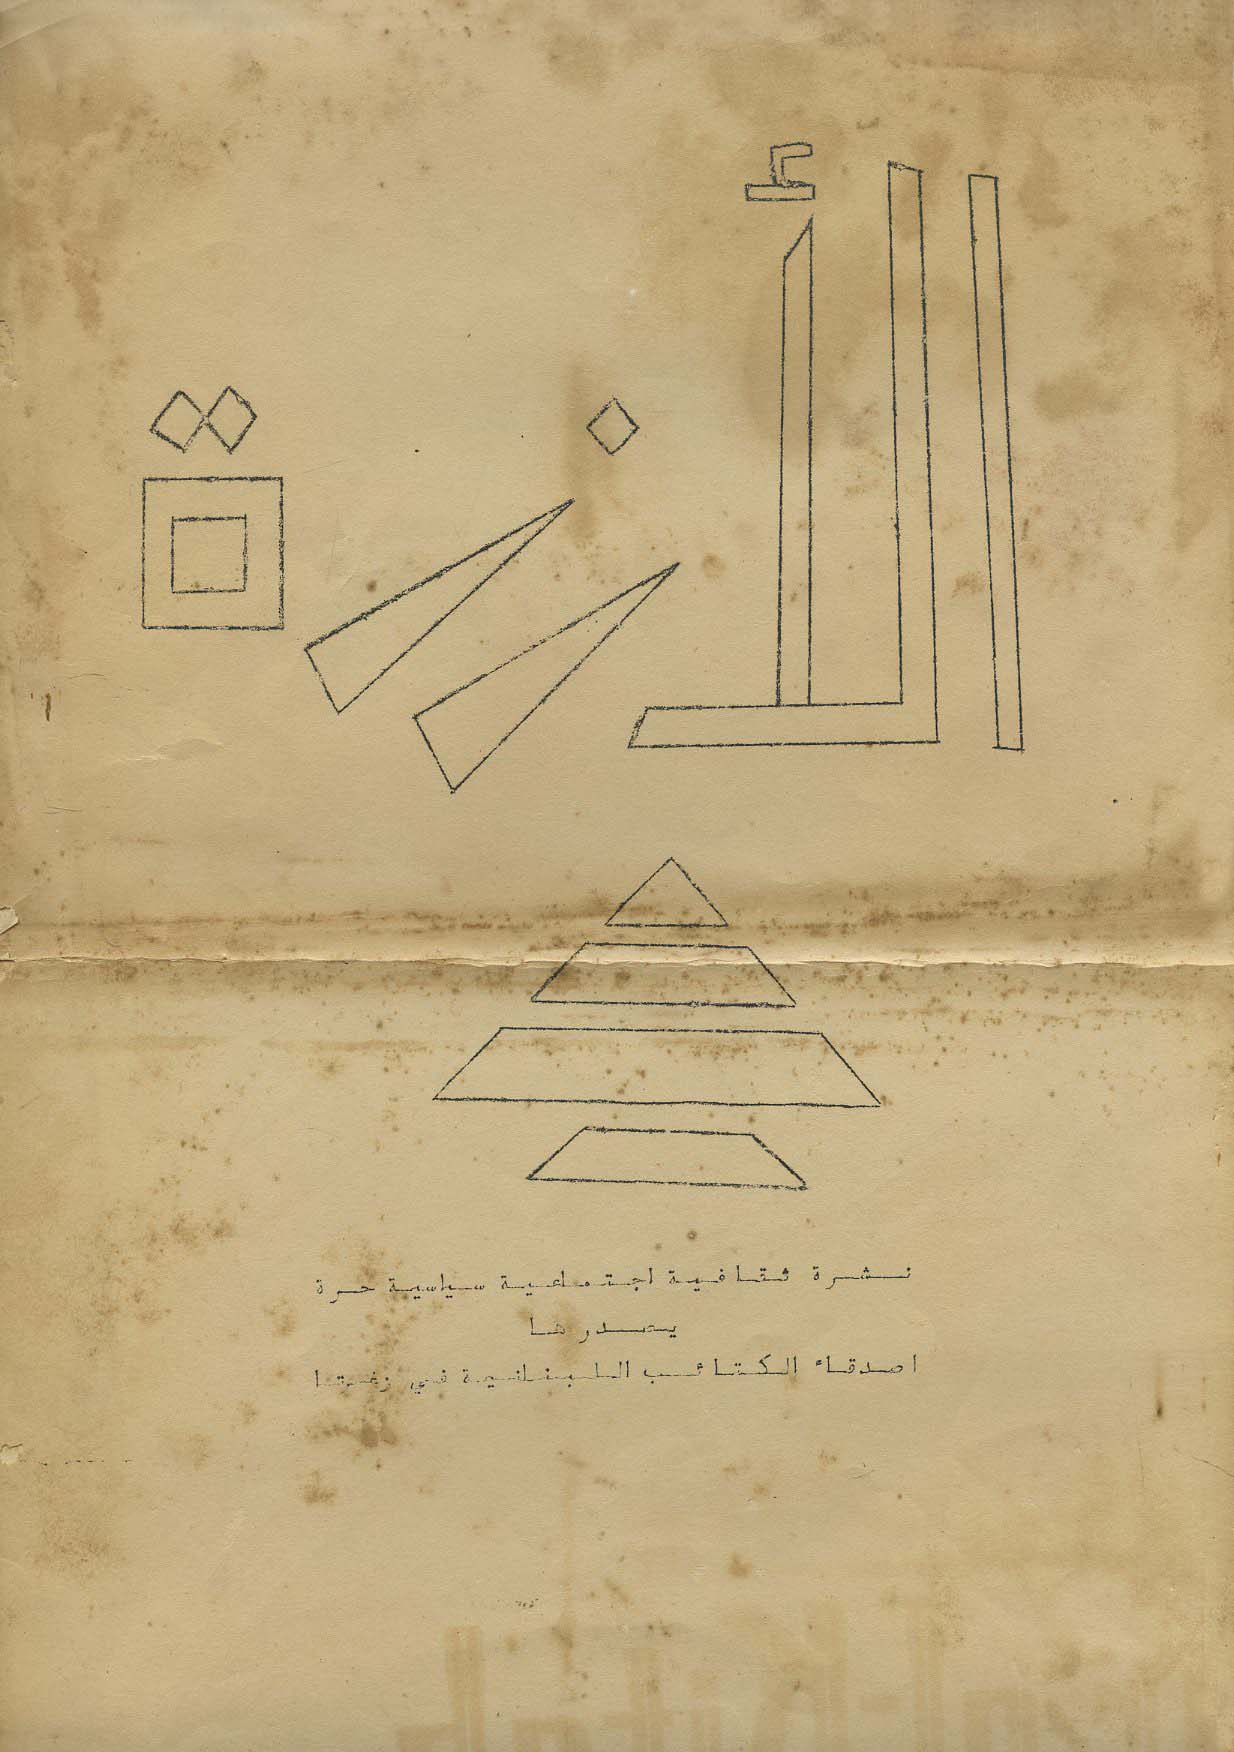 الأرزة
نشرة ثقافية اجتماعية سياسية حرة
يصدرها
اصدقاء الكتائب اللبنانية في زغرتا